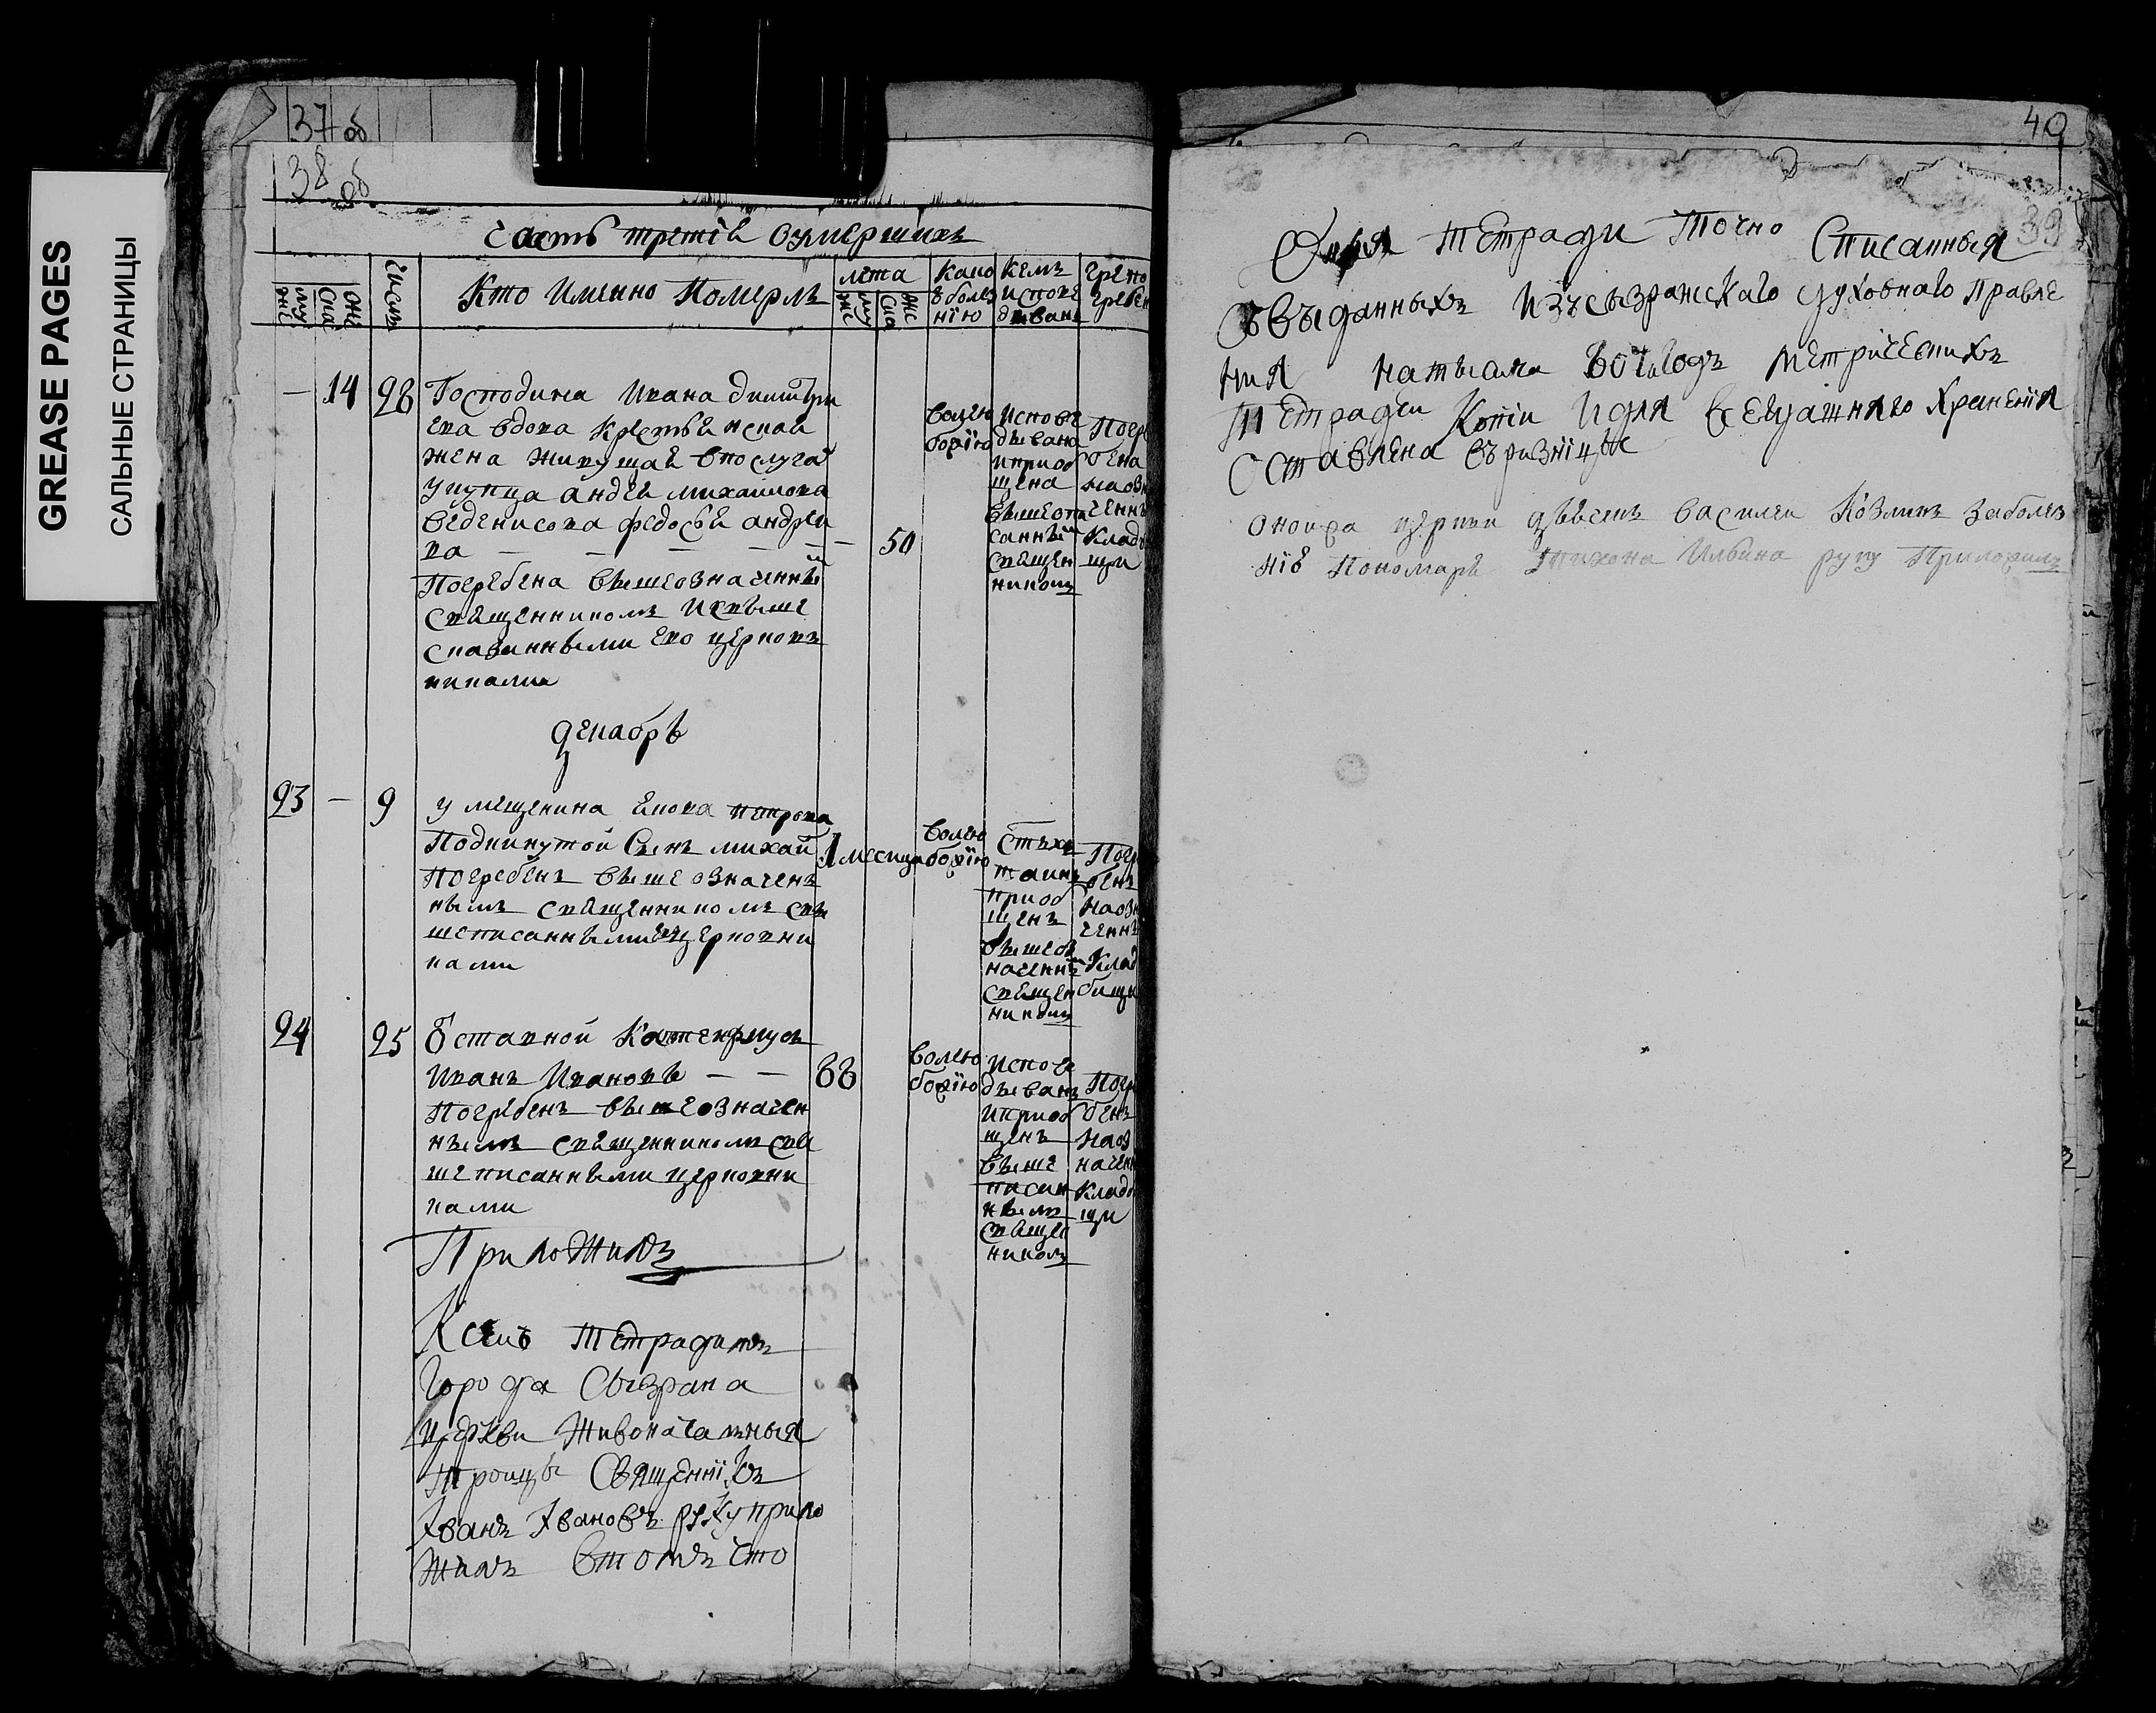 GREASE PAGES
САЛЬНЫЕ СТРАНИЦЫ
37 об
38 об
часть третїя оумершихъ
числ
Кто Именно Померлъ
лета
какою болезнїю
кемъ исповедыванъ
где погребен
муже
ска
женс
— 14 28 Господина Ивана дмитри
ева вдова крестьенская
жена живущая впослуга
у купца андея михаилова
веденисова федосья андрее
ва — — — — — 50
Погребена вышеозначенны
священникомъ исвыше
сказанными ево церковъ
никами
волею божїю
исповедывана и приобщена вышеописаннымъ священникомъ
Погребена наозначенн клад
декабрь
23 — 9 у мещенина якова петрова
Подкинутой Сынъ михай
1 месица
Погребенъ выше означенъ
нымъ священникомъ свы
шеписанными церковни
ками
волею божїю
таинъ приобщенъ вышеозначеннымъ священникомъ
24 25 Оставной
Иванъ Ивановъ — — 88
Погребенъ вышеозначен
нымъ священникомъ свы
шеписанными церковни
ками
волею божїю
исповедыванъ и приобщенъ вышеписаннымъ священникомъ
Приложилъ
Ксимъ тетрадямъ
Города Сызрана
церкви Живоначалныя
Троицы Священнїкъ
Іванъ Івановъ руку прило
жилъ втомъ что
40
39
тетради Точно Списанныя
съвыданныхъ Изъсызранскаго духовнаго правле
ния натысяча годъ метрическихъ
Тетрадей Копїи И для всегдашняго Хранения
Оставлена въризнїце
оноижа церкви дьячекъ василеи Козминъ заболез
нїю Пономаря Тихона Ильина руку Приложилъ